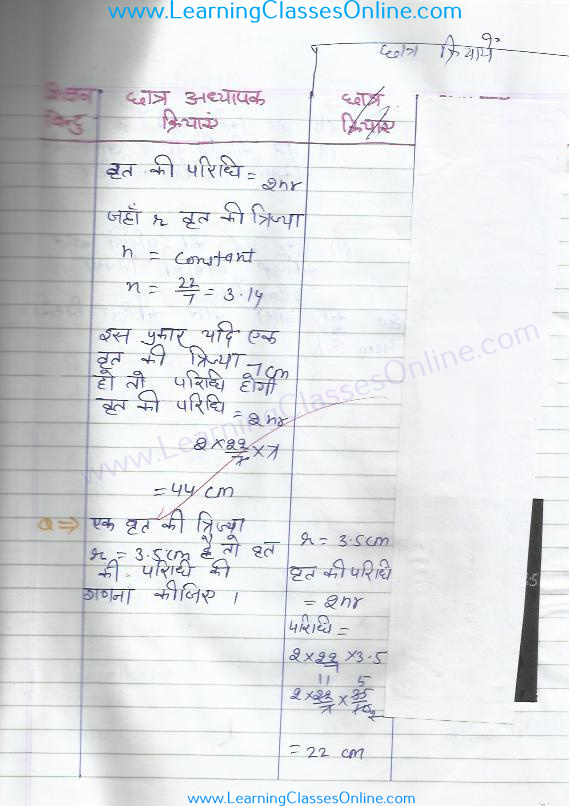 www.LearningClassesOnline.com
छात्र क्रियायें
शिक्षण बिन्दु
छात्र अध्यापक क्रियाएं
छात्र क्रियाएं
वृत की परिधि = 2πr
जहाँ r वृत की त्रिज्या
π = constant
π = 22/7 = 3.14
इस प्रकार यदि एक
वृत की त्रिज्या 7cm
हो तो परिधि होगी
वृत की परिधि = 2πr
2 × 22/7 × 7
= 44 cm
Q ⇒ एक वृत की त्रिज्या
r = 3.5cm है तो वृत
की परिधि की
गणना कीजिए ।
r = 3.5cm
वृत की परिधि
= 2πr
परिधि =
2 × 22/7 × 3.5
11 5
2 × 22/7 × 35/10 2
= 22 cm
www.LearningClassesOnline.com
www.LearningClassesOnline.com